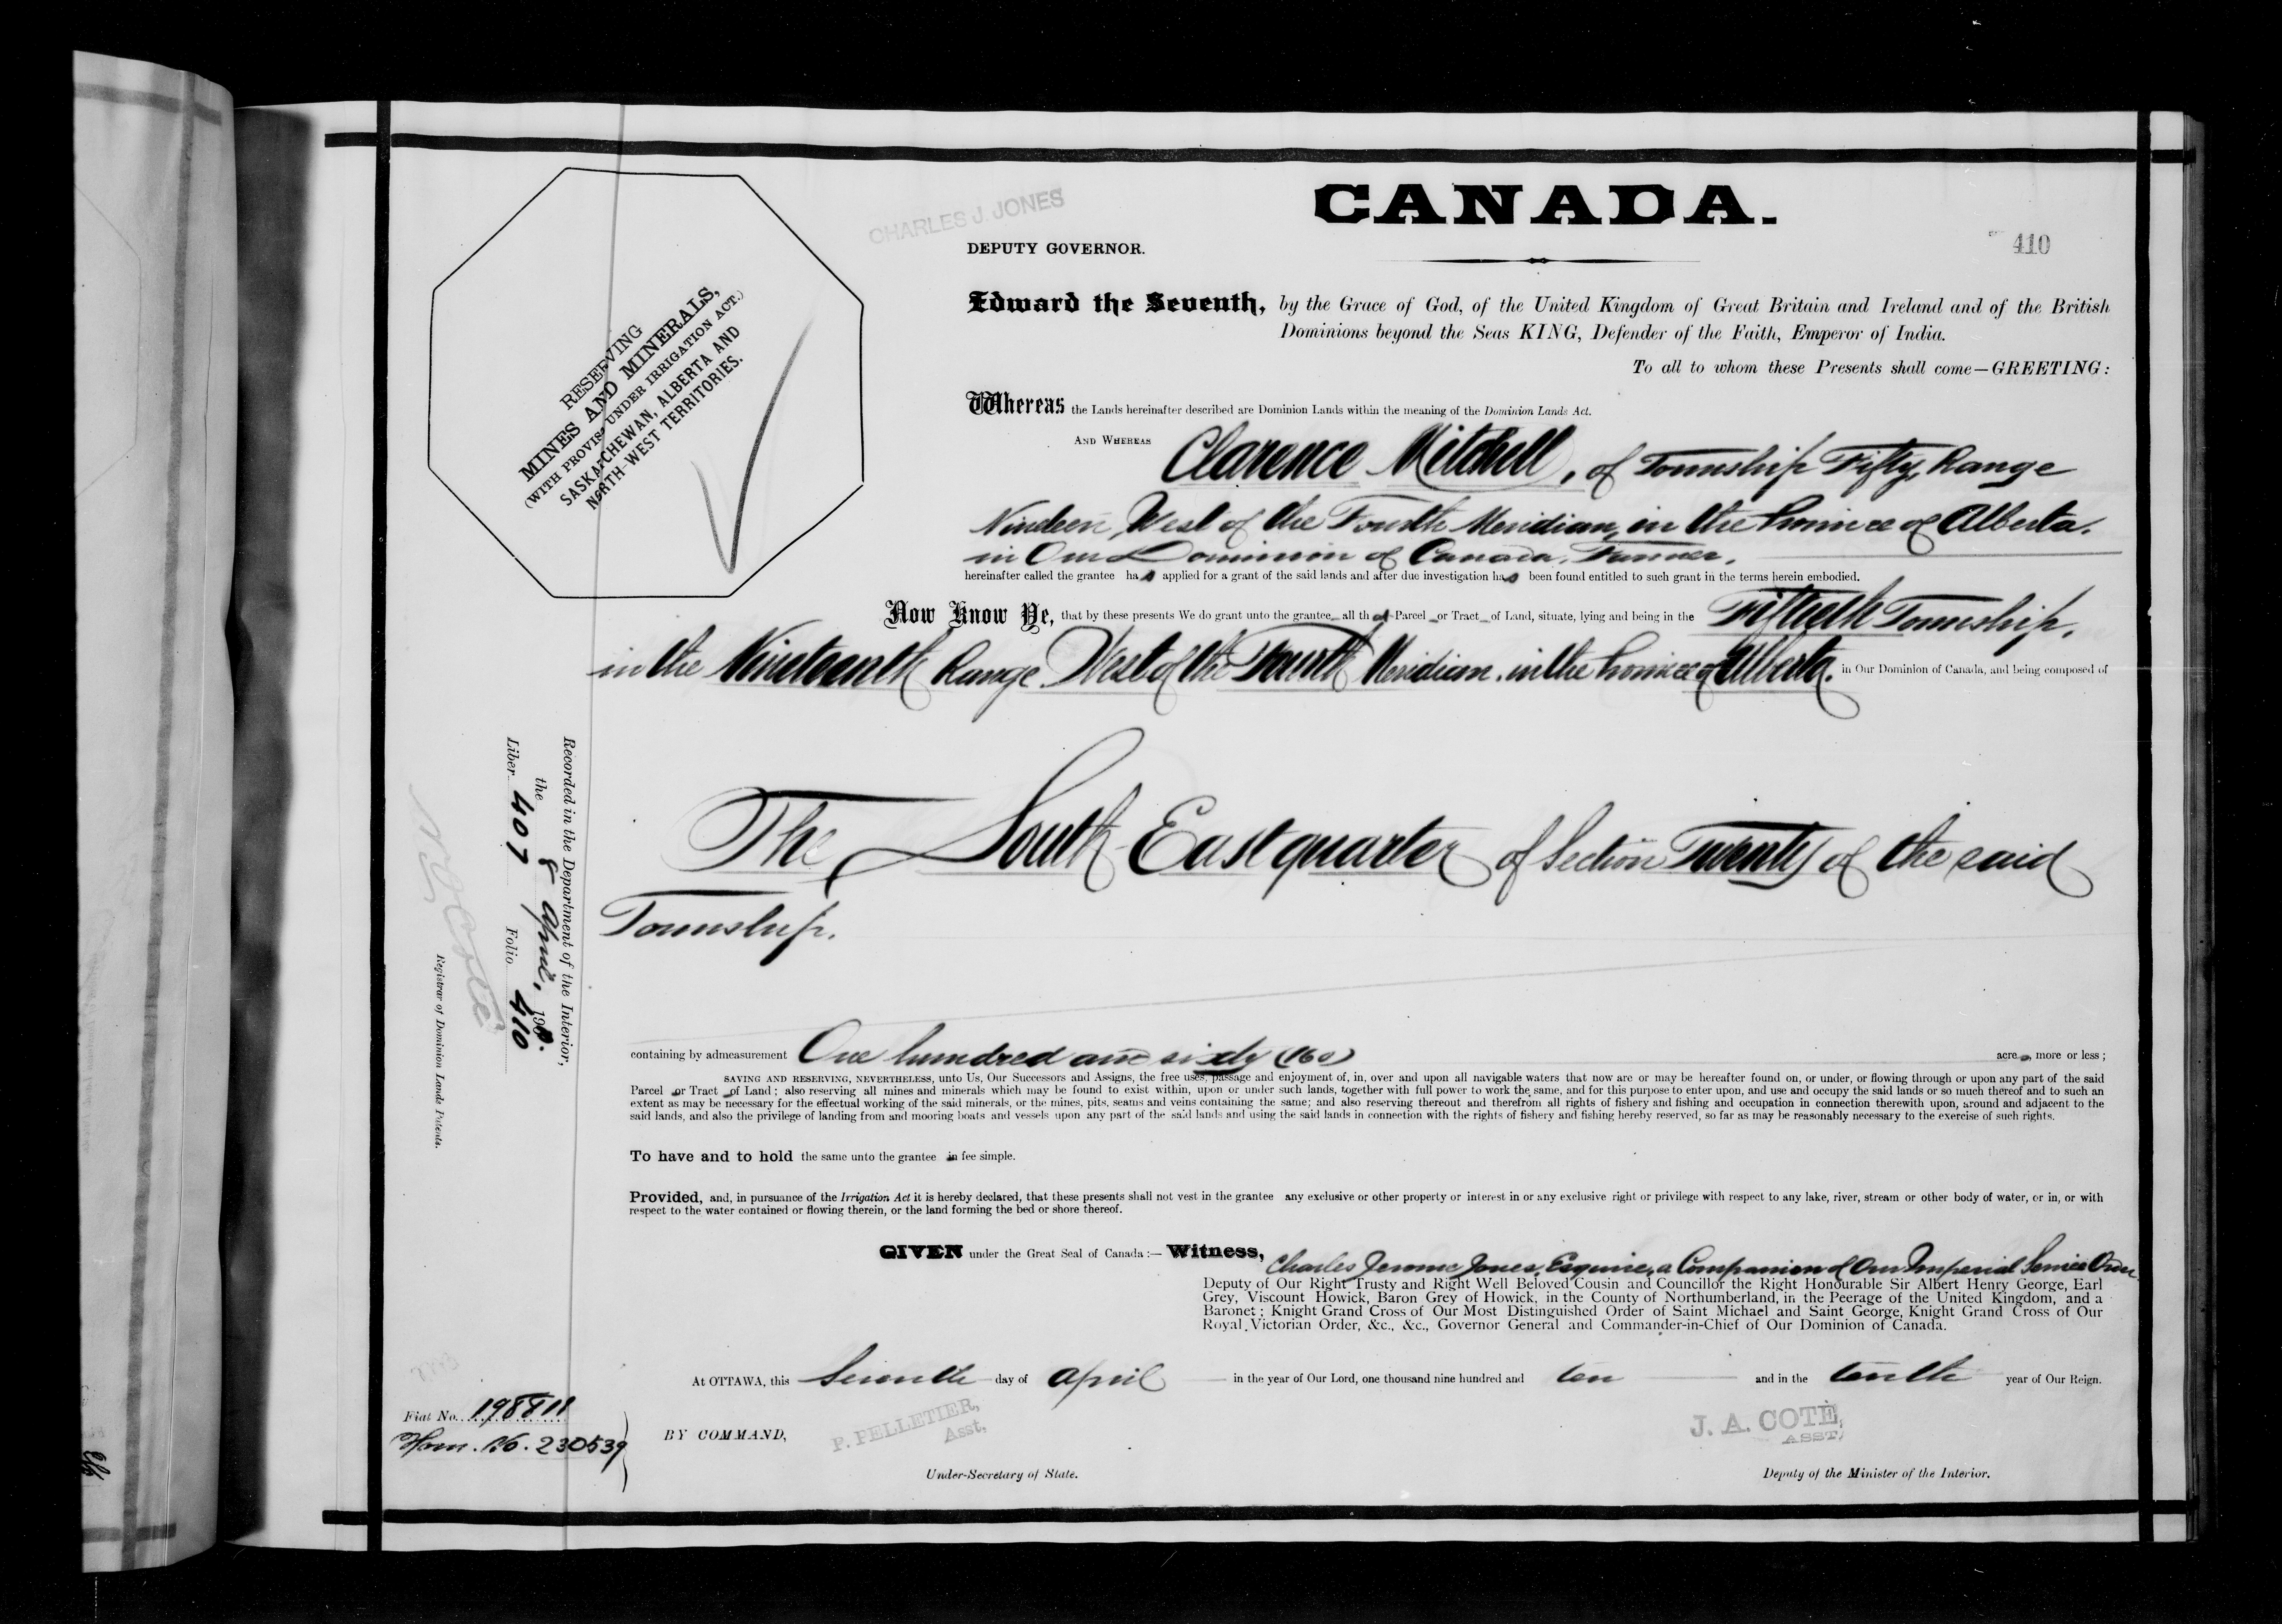 CANADA.
CHARLES J. JONES
DEPUTY GOVERNOR.
410
RESERVING
MINES AND MINERALS,
(WITH PROVISO UNDER IRRIGATION ACT.)
SASKATCHEWAN, ALBERTA AND
NORTH-WEST TERRITORIES.
Edward the Seventh, by the Grace of God, of the United Kingdom of Great Britain and Ireland and of the British
Dominions beyond the Seas KING, Defender of the Faith, Emperor of India.
To all to whom these Presents shall come—GREETING:
Whereas the Lands hereinafter described are Dominion Lands within the meaning of the Dominion Lands Act.
AND WHEREAS Clarence Mitchell, of Township Fifty, Range
Nineteen, West of the Fourth Meridian, in the Province of Alberta,
in Our Dominion of Canada, Farmer,
hereinafter called the grantee has applied for a grant of the said lands and after due investigation has been found entitled to such grant in the terms herein embodied.
Now Know Ye, that by these presents We do grant unto the grantee all that Parcel or Tract of Land, situate, lying and being in the Fiftieth Township,
in the Nineteenth Range West of the Fourth Meridian, in the Province of Alberta, in Our Dominion of Canada, and being composed of
The South East quarter of Section Twenty of the said
Township.
Recorded in the Department of the Interior,
the 8 April, 19
Liber 407 Folio 410
Registrar of Dominion Lands Patents.
containing by admeasurement One hundred and sixty (160) acres, more or less;
SAVING AND RESERVING, NEVERTHELESS, unto Us, Our Successors and Assigns, the free uses, passage and enjoyment of, in, over and upon all navigable waters that now are or may be hereafter found on, or under, or flowing through or upon any part of the said
Parcel or Tract of Land; also reserving all mines and minerals which may be found to exist within, upon or under such lands, together with full power to work the same, and for this purpose to enter upon, and use and occupy the said lands or so much thereof and to such an
extent as may be necessary for the effectual working of the said minerals, or the mines, pits, seams and veins containing the same; and also reserving thereout and therefrom all rights of fishery and fishing and occupation in connection therewith upon, around and adjacent to the
said lands, and also the privilege of landing from and mooring boats and vessels upon any part of the said lands and using the said lands in connection with the rights of fishery and fishing hereby reserved, so far as may be reasonably necessary to the exercise of such rights.
To have and to hold the same unto the grantee in fee simple.
Provided, and, in pursuance of the Irrigation Act it is hereby declared, that these presents shall not vest in the grantee any exclusive or other property or interest in or any exclusive right or privilege with respect to any lake, river, stream or other body of water, or in, or with
respect to the water contained or flowing therein, or the land forming the bed or shore thereof.
GIVEN under the Great Seal of Canada:— Witness, Charles Jerome Jones, Esquire, a Companion of Our Imperial Service Order
Deputy of Our Right Trusty and Right Well Beloved Cousin and Councillor the Right Honourable Sir Albert Henry George, Earl
Grey, Viscount Howick, Baron Grey of Howick, in the County of Northumberland, in the Peerage of the United Kingdom, and a
Baronet; Knight Grand Cross of Our Most Distinguished Order of Saint Michael and Saint George, Knight Grand Cross of Our
Royal Victorian Order, &c., &c., Governor General and Commander-in-Chief of Our Dominion of Canada.
At OTTAWA, this Seventh day of April in the year of Our Lord, one thousand nine hundred and ten and in the tenth year of Our Reign.
Fiat No. 198811
Hom. No. 230539
BY COMMAND,
P. PELLETIER,
Asst.
Under-Secretary of State.
J. A. COTE,
ASST.
Deputy of the Minister of the Interior.